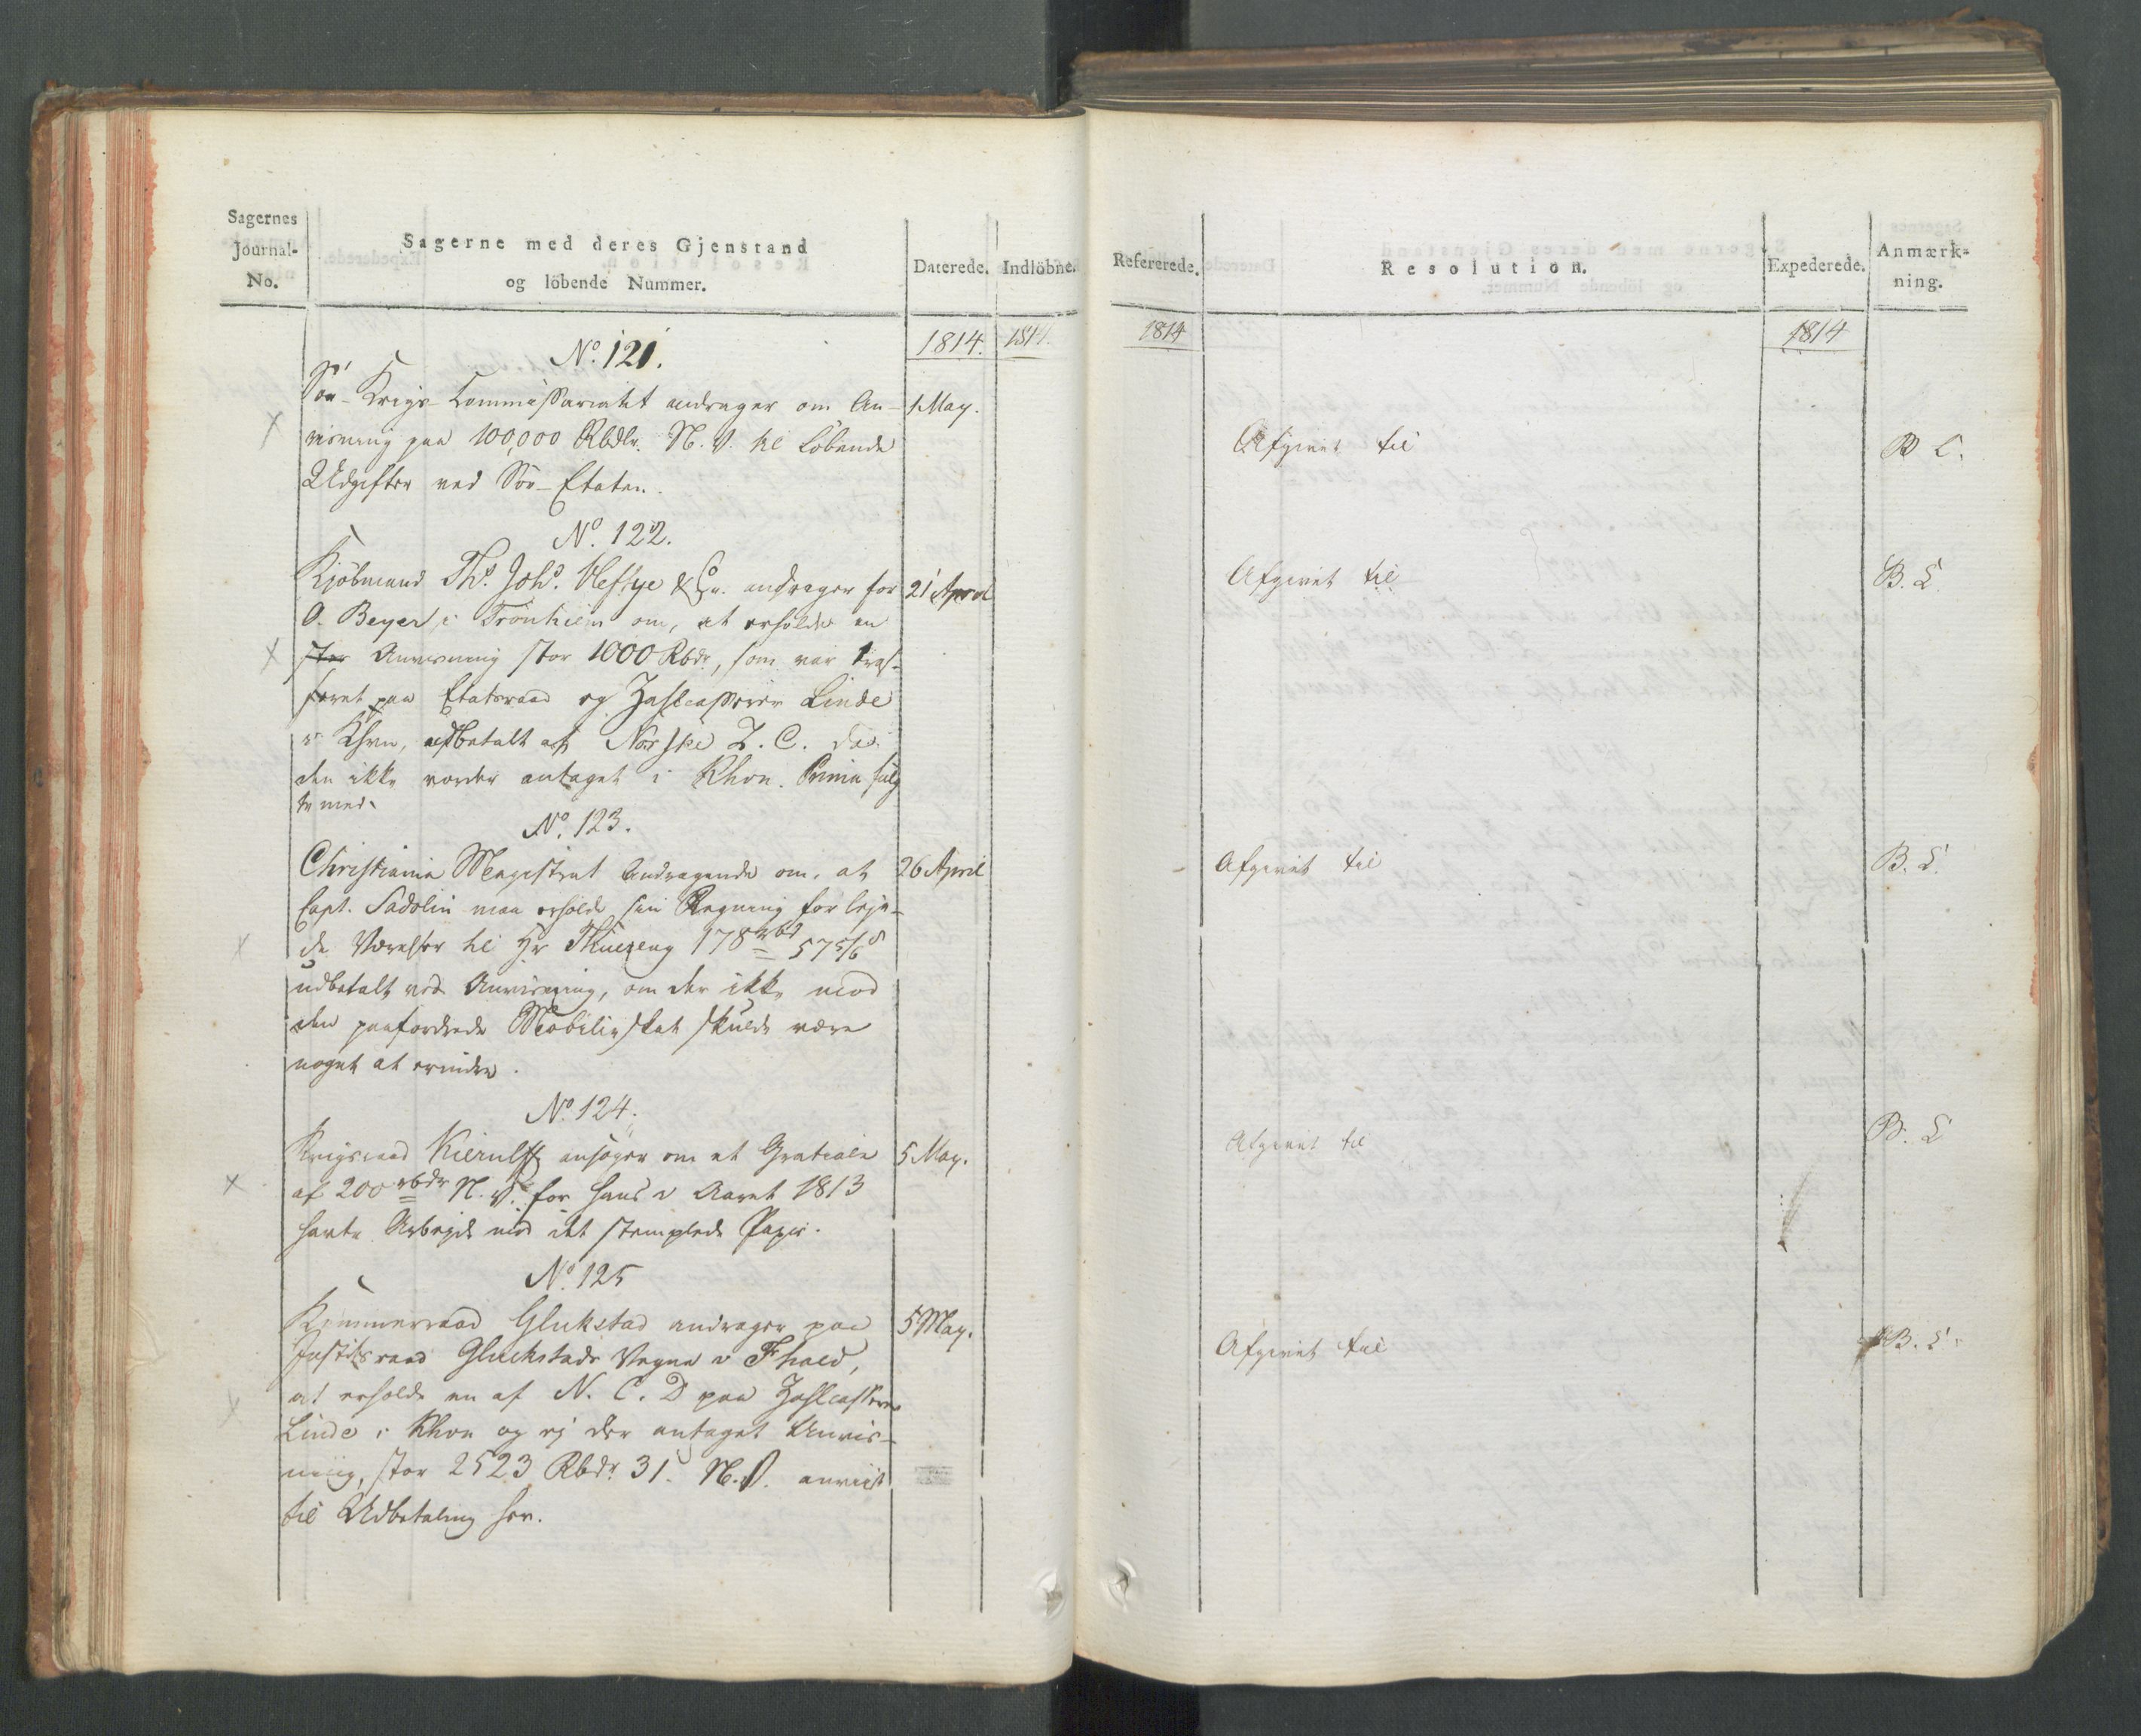 Sagernes
Journal-
No.
Sagerne med deres Gjenstand
og löbende Nummer.
Daterede.
Indlöbne.
1814.
1814.
No. 121.
Söe-Krigs-Commissariatet andrager om An-
1 May.
visning paa 100,000 Rbdlr. N. V. til löbende
Udgifter ved Söe-Etaten.
No. 122.
Kjöbmand Ths. Johs. Heftye & Co. andrager for
21 April
O. Beyer i Tronhiem om, at erholde en
stor Anviisning stor 1000 Rbdr, som var tras-
seret paa Etatsraad og Zahlcasserer Linde
i Khvn, udbetalt af Norske Z. C. da
den ikke vorder antaget i Khvn. Prima fulg
te med.
No. 123.
Christiania Magistrat Andragende om, at
26 April
Capt. Sadolin maa erholde sin Regning for leje-
de Værelser til Hr 178 rbd 57 5/6 s
udbetalt ved Anviisning, om der ikke mod
den paafordrede Mobilieskat skulde være
noget at erindre.
No. 124.
Krigsraad Kierulff ansöger om et Gratiale
5 May.
af 200 rbdr N. V. for hans i Aaret 1813
havte Arbejde med det stemplede Papir.
No. 125
Kammerraad Glukstad andrager paa
5 May.
Justitsraad Gluckstads Vegne i Fhald,
at erholde en af N. C. D paa Zahlcasserer
Linde i Khvn og ej der antaget Anvis-
ning, stor 2523 Rbdr 31. N. V. anviist
til Udbetaling her.
Refererede.
Resolution.
Expederede.
Anmærk-
ning.
1814
1814
Afgivet til
B C.
Afgivet til
B. C.
Afgivet til
B. C.
Afgivet til
B. C
Afgivet til
B. C.